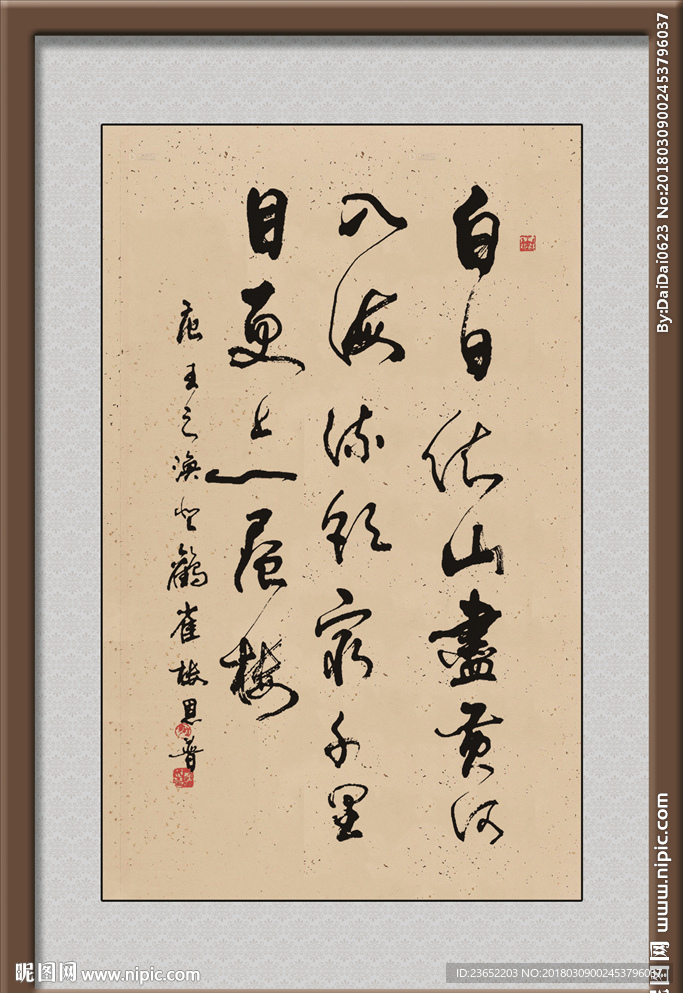 白日依山盡黄河
入海流欲窮千里
目更上一層樓
唐王之渙登鸛雀樓思普
By:DaiDai0623 No:20180309002453796037
昵图网 www.nipic.com
昵图网 www.nipic.com
ID:23652203 NO:20180309002453796037